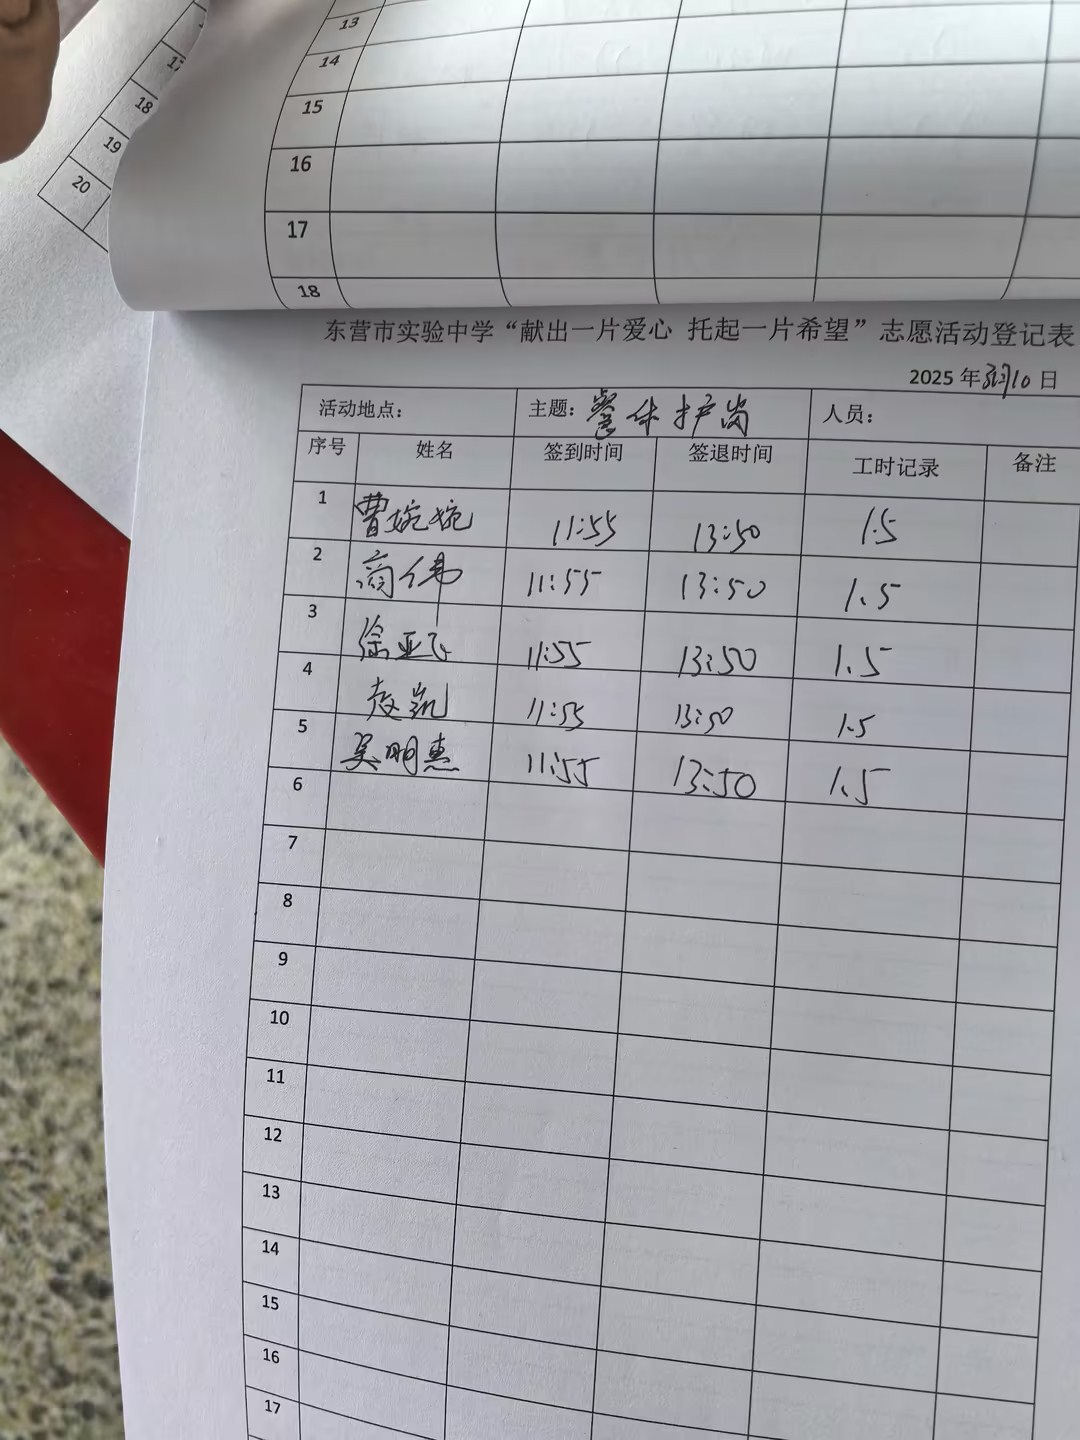 13
14
15
16
17
18
17
18
19
20
东营市实验中学“献出一片爱心 托起一片希望”志愿活动登记表
2025 年3月10 日
活动地点: 主题: 餐休护岗 人员:
序号 姓名 签到时间 签退时间 工时记录 备注
1 曹婉婉 11:55 13:50 1.5
2 商伟 11:55 13:50 1.5
3 徐亚飞 11:55 13:50 1.5
4 赵凯 11:55 13:50 1.5
5 吴明惠 11:55 13:50 1.5
6
7
8
9
10
11
12
13
14
15
16
17